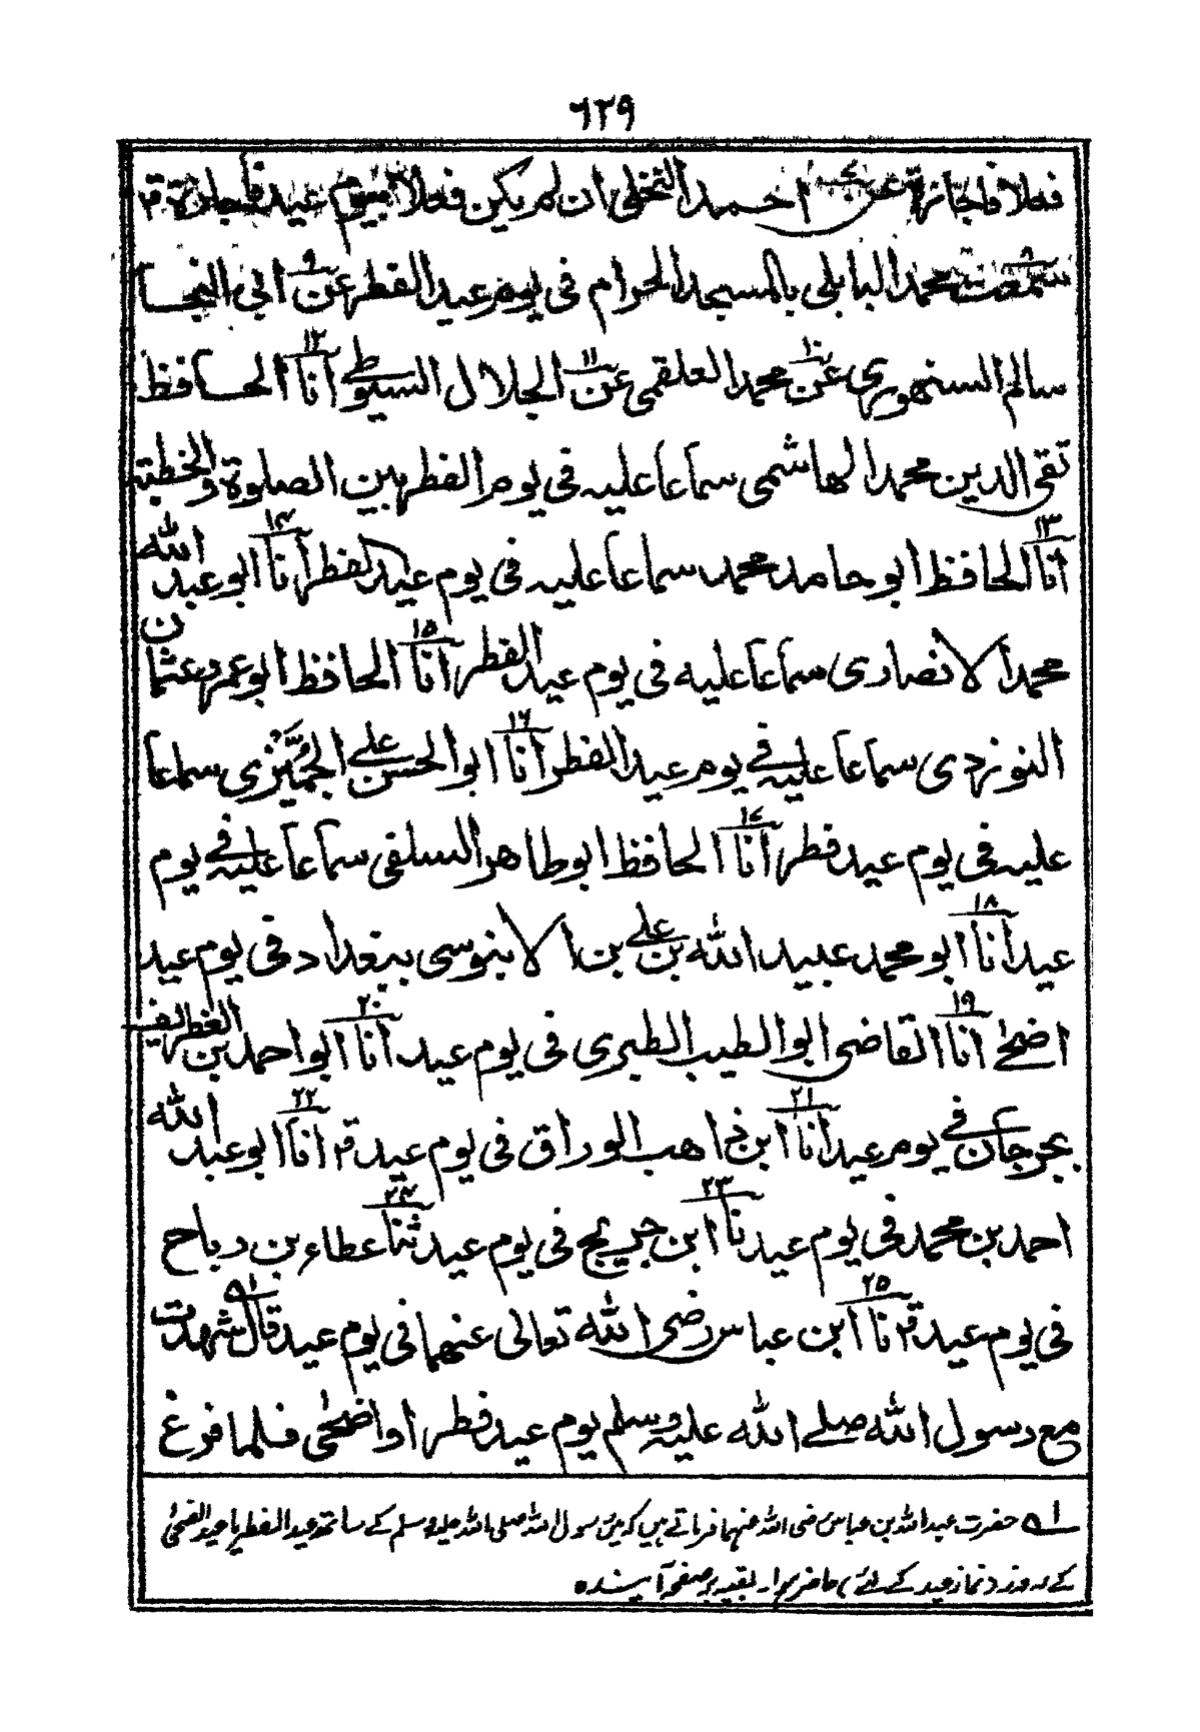 ۶۲۹
فعلا فاجازۃ عن احمد النخلی ان لم یکن فعلا بیوم عید فاجازۃ قر
۸ سمعت محمد البابلی بالمسجد الحرام فی یوم عید الفطر ۹ عن ابی النجا
سالم السنهوری ۱۰ عن محمد العلقمی ۱۱ عن الجلال السیوطی ۱۲ انا الحافظ
تقی الدین محمد الهاشمی سماعا علیہ فی یوم الفطر بین الصلوة والخطبة
۱۳ انا الحافظ ابو حامد محمد سماعا علیہ فی یوم عید الفطر ۱۴ انا ابو عبد اللہ
محمد الانصاری سماعا علیہ فی یوم عید الفطر ۱۵ انا الحافظ ابو عمرو عثمان
النوزدی سماعا علیہ فی یوم عید الفطر ۱۶ انا ابو الحسن علی الجُمَّیزی سماعا
علیہ فی یوم عید فطر ۱۷ انا الحافظ ابو طاهر السلفی سماعا علیہ فی یوم
عید ۱۸ انا ابو محمد عبید اللہ بن علی بن الابنوسی ببغداد فی یوم عید
اضحی ۱۹ انا القاضی ابو الطیب الطبری فی یوم عید ۲۰ انا ابو احمد بن الغطریف
بجرجان فی یوم عید ۲۱ انا ابن زاهب الوراق فی یوم عید قر ۲۲ انا ابو عبد اللہ
احمد بن محمد فی یوم عید ۲۳ نا ابن جریج فی یوم عید ۲۴ ثنا عطاء بن رباح
فی یوم عید قر ۲۵ نا ابن عباس رضی اللہ تعالی عنهما فی یوم عید قال شهدت
مع رسول اللہ صلے اللہ علیہ وسلم یوم عید فطر او اضحٰی فلما فرغ
۱ حضرت عبد اللہ بن عباس رضی اللہ عنہما فرماتے ہیں کہ میں رسول اللہ صلی اللہ علیہ وسلم کے ساتھ عید الفطر یا عید الضحیٰ
کے روز (نماز عید کے لئے) حاضر ہوا۔ بقیہ بر صفحہ آیندہ